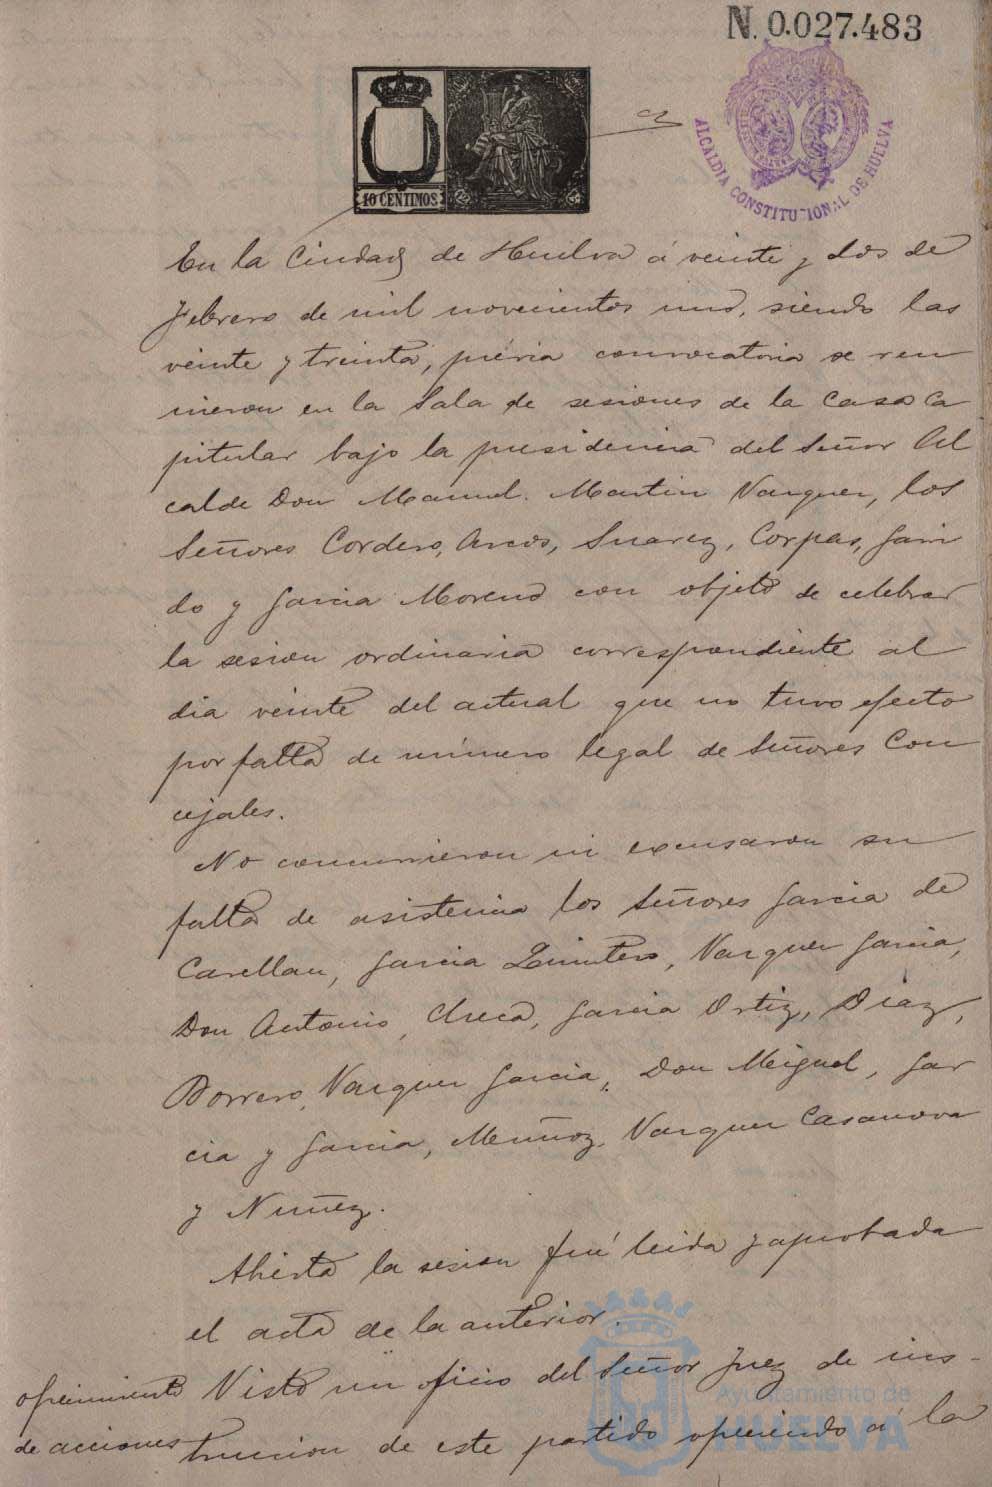 N. 0.027.483
10 CENTIMOS
ALCALDIA CONSTITUCIONAL DE HUELVA
En la Ciudad de Huelva á veinte y dos de
Febrero de mil novecientos uno, siendo las
veinte y treinta, prévia convocatoria se reu
nieron en la Sala de sesiones de la Casa Ca
pitular bajo la presidencia del Señor Al
calde Don Manuel Martin Vazquez, los
Señores Cordero, Arcos, Suarez, Corpas, Garri
do y Garcia Moreno con objeto de celebrar
la sesion ordinaria correspondiente al
dia veinte del actual que no tuvo efecto
por falta de número legal de Señores Con
cejales.
No concurrieron ni excusaron su
falta de asistencia los Señores Garcia de
Carellan, Garcia Quintero, Vazquez Garcia,
Don Antonio, Checa, Garcia Ortiz, Diaz,
Borrero, Vazquez Garcia, Don Miguel, Gar
cia y Garcia, Muñoz, Vazquez Casanova
y Nuñez.
Abierta la sesion fué leida y aprobada
el acta de la anterior.
ofrecimiento Visto un oficio del Señor Juez de ins-
de acciones truccion de este partido ofreciendo á la
Ayuntamiento de
HUELVA